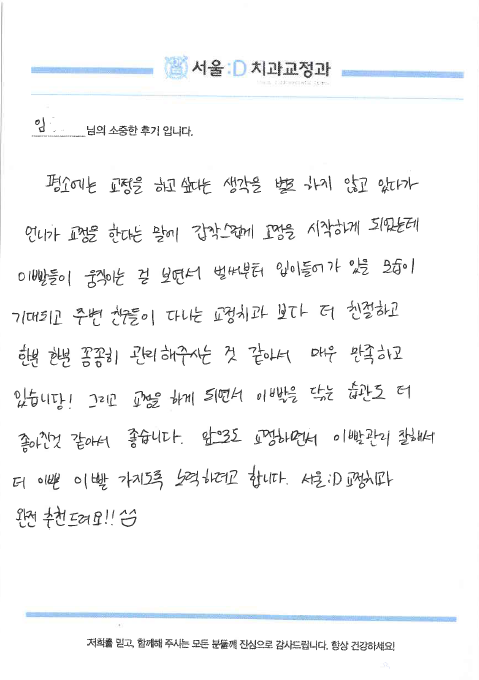 서울:D 치과교정과
임 님의 소중한 후기 입니다.
평소에는 교정을 하고싶다는 생각을 별로 하지 않고 있다가
언니가 교정을 한다는 말에 갑작스럽게 교정을 시작하게 되었는데
이빨들이 움직이는 걸 보면서 벌써부터 입이들어가 있을 모습이
기대되고 주변 친구들이 다니는 교정치과 보다 더 친절하고
한분 한분 꼼꼼히 관리해주시는 것 같아서 매우 만족하고
있습니당! 그리고 교정을 하게 되면서 이빨을 닦는 습관도 더
좋아진것 같아서 좋습니다. 앞으로도 교정하면서 이빨관리 잘해서
더 이쁜 이빨 가지도록 노력하려고 합니다. 서울:D 교정치과
완전 추천드려요!! ^^
저희를 믿고, 함께해 주시는 모든 분들께 진심으로 감사드립니다. 항상 건강하세요!